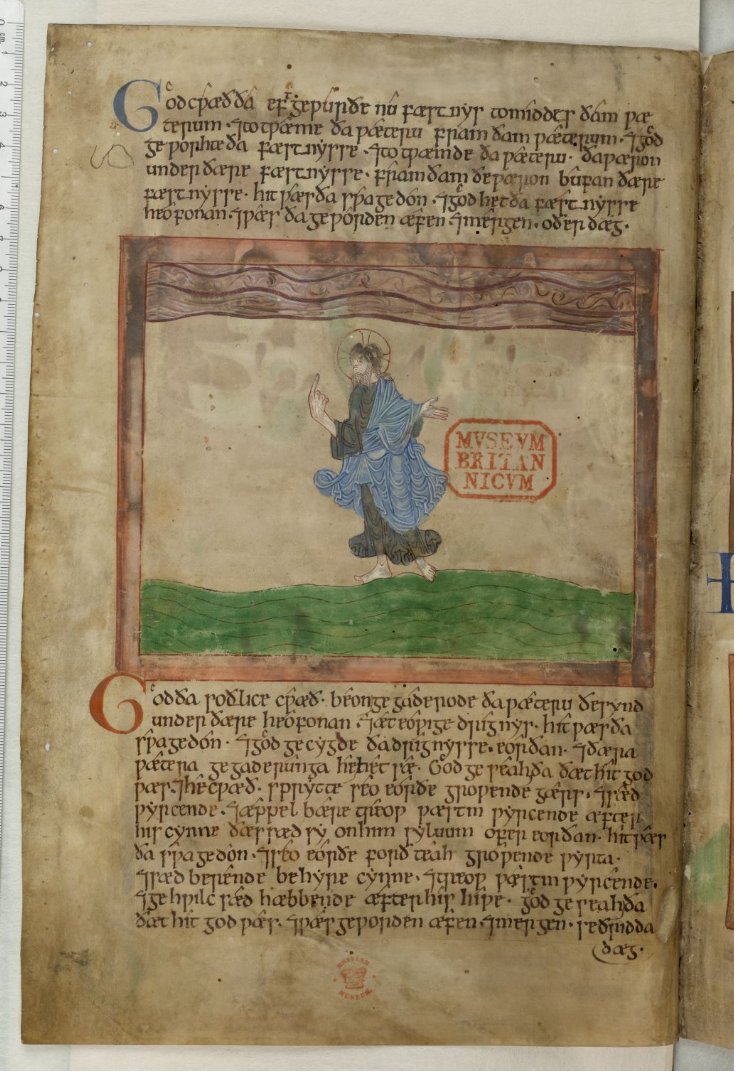 God cƿæð ða eft geƿurðe nu fæstnys tomiddes ðam ƿæ
terum · ⁊ totƿæme ða ƿæteru fram ðam ƿæterum · ⁊ god
geƿorhte ða fæstnysse · ⁊ totƿæmde ða ƿæteru · ða ƿæron
under ðære fæstnysse · fram ðam ðe ƿæron bufan ðære
fæstnysse · hit ƿæs ða sƿa gedon · ⁊ god het ða fæstnysse
heofonan · ⁊ ƿæs ða geƿorden æfen ⁊ merigen · oðer dæg ·
MVSEVM
BRITAN
NICVM
God ða soðlice cƿæð · beon gegaderode ða ƿæteru ðe synd
under ðære heofonan · ⁊ æteoƿige drignys · hit ƿæs ða
sƿa gedon · ⁊ god gecygde ða drignysse · eorðan · ⁊ ðæra
ƿætera gegaderunga he het sæ · God geseah ða ðæt hit god
ƿæs · ⁊ he cƿæð · spritte seo eorðe groƿende gærs · ⁊ sæd
ƿyrcende · ⁊ æppelbære treoƿ ƿæstm ƿyrcende æfter
his cynne ðæs sæd sy on him sylfum ofer eorðan · hit ƿæs
ða sƿa gedon · ⁊ seo eorðe forðteah groƿende ƿyrta ·
⁊ sæd berende be hyre cynne · ⁊ treoƿ ƿæstm ƿyrcende ·
⁊ gehƿilc sæd hæbbende æfter his hiƿe · god geseah ða
ðæt hit god ƿæs · ⁊ ƿæs geƿorden æfen · ⁊ mergen · se ðridda
dæg ·